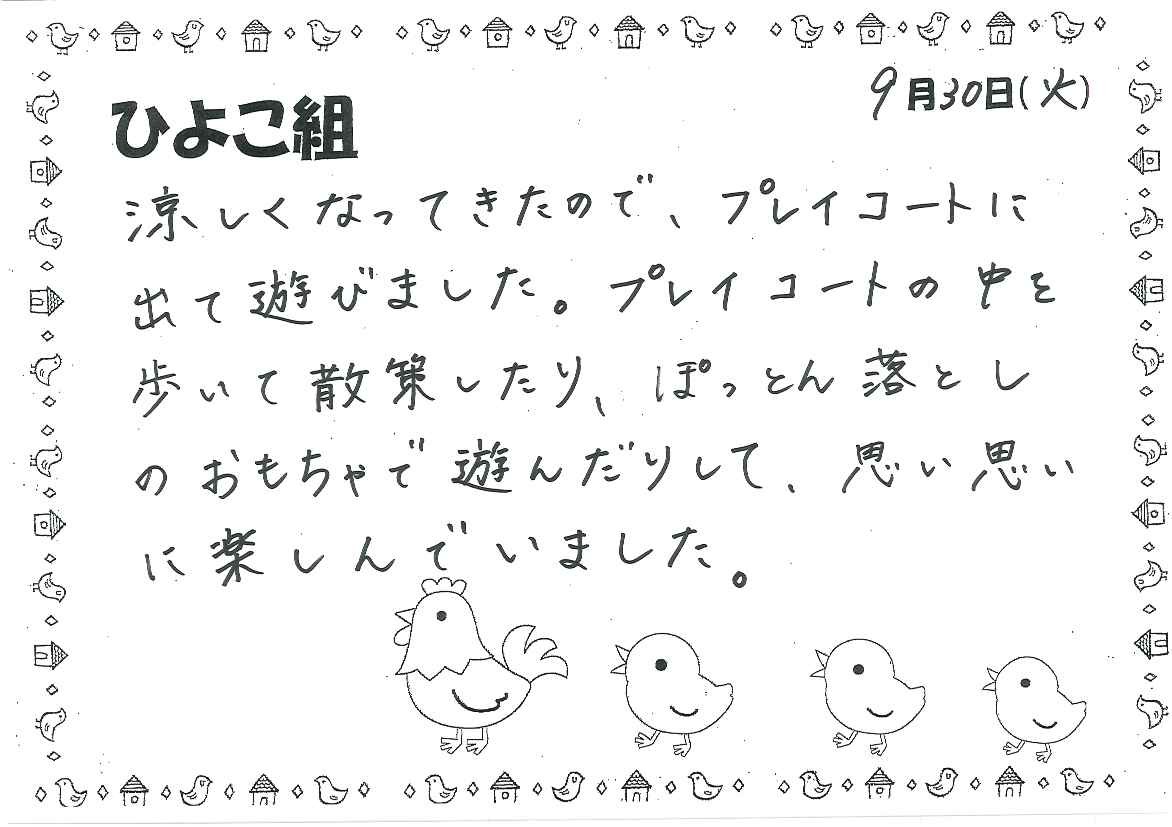 9月30日(火)
ひよこ組
涼しくなってきたので、プレイコートに
出て遊びました。プレイコートの中を
歩いて散策したり、ぽっとん落とし
のおもちゃで遊んだりして、思い思い
に楽しんでいました。